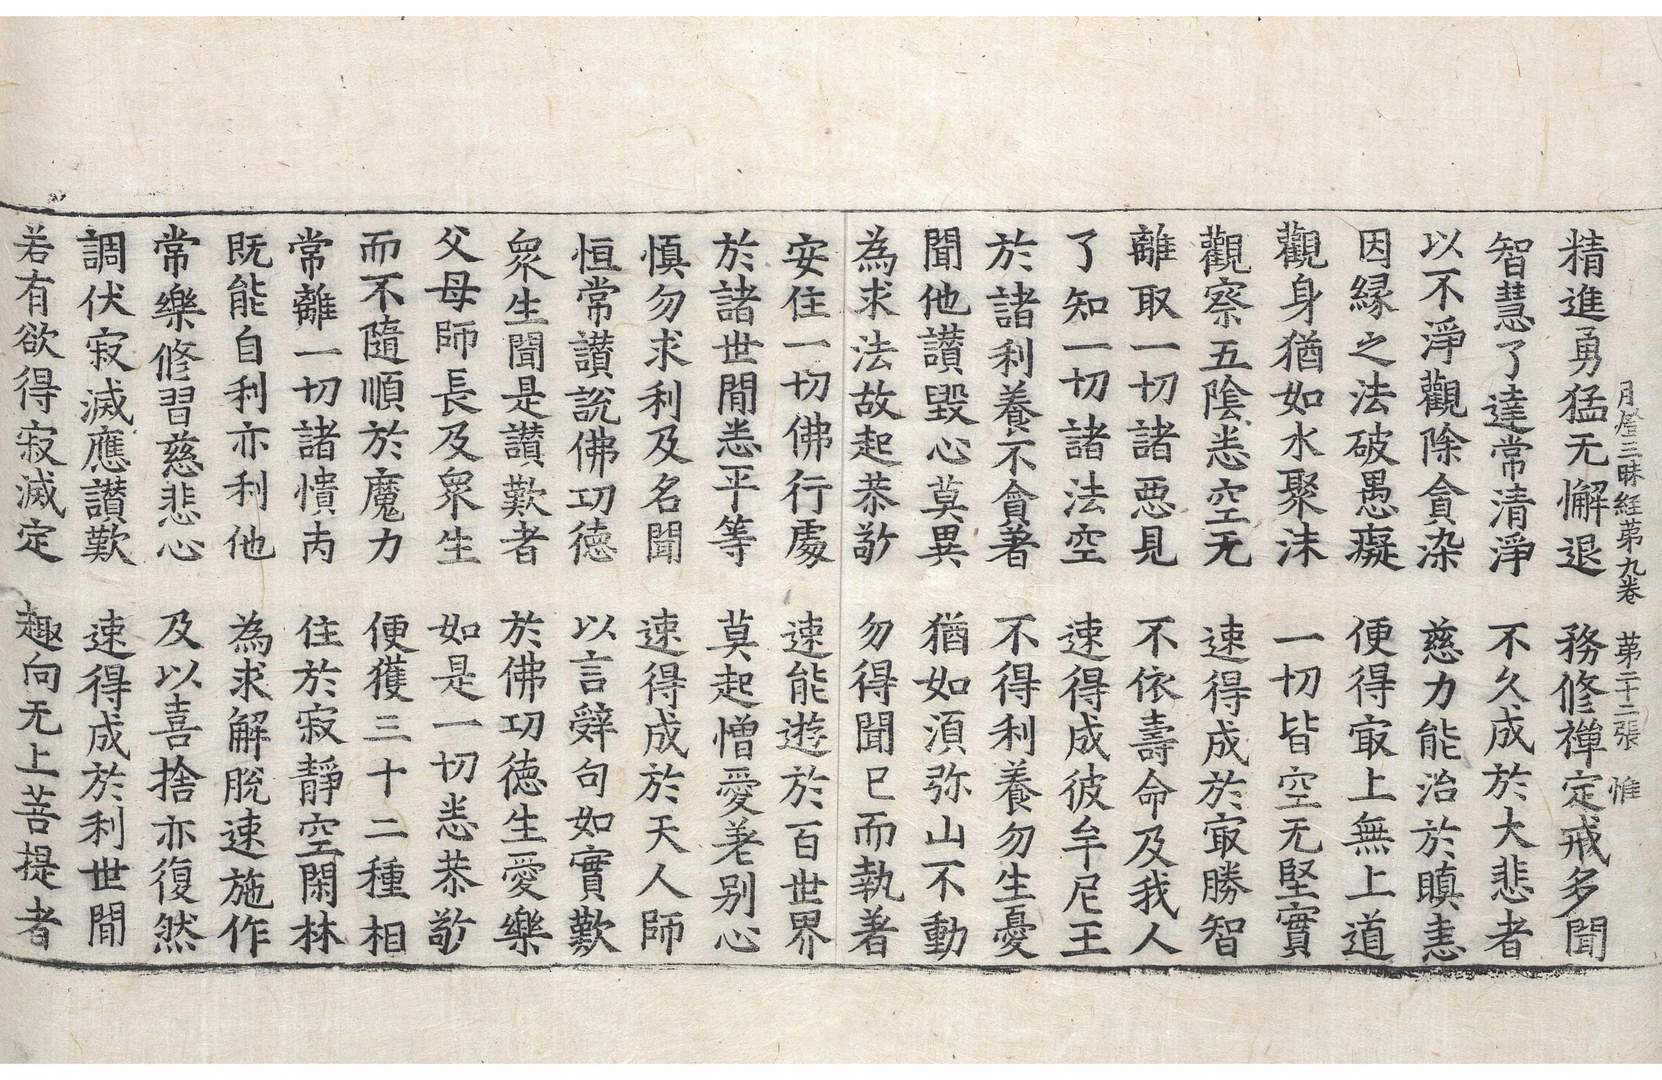 月燈三昧經苐九卷　苐二十二張　惟
精進勇猛无懈退　務修禅定戒多聞
智慧了達常清淨　不久成於大悲者
以不淨觀除貪染　慈力能治於瞋恚
因緣之法破愚癡　便得㝡上無上道
觀身猶如水聚沫　一切皆空无堅實
觀察五陰悉空无　速得成於㝡勝智
離取一切諸惡見　不依壽命及我人
了知一切諸法空　速得成彼牟尼王
於諸利養不貪著　不得利養勿生憂
聞他讃毀心莫異　猶如湏弥山不動
為求法故起恭敬　勿得聞已而執著
安住一切佛行處　速能遊於百世界
於諸世閒悉平等　莫起憎愛差别心
慎勿求利及名聞　速得成於天人師
恒常讃說佛功德　以言辝句如實歎
衆生聞是讃歎者　於佛功德生愛樂
父母師長及衆生　如是一切悉恭敬
而不隨順於魔力　便獲三十二種相
常離一切諸憒丙　住於寂靜空閑林
既能自利亦利他　為求解脫速施作
常樂修習慈悲心　及以喜捨亦復然
調伏寂滅應讃歎　速得成於利世閒
若有欲得寂滅定　趣向无上菩提者